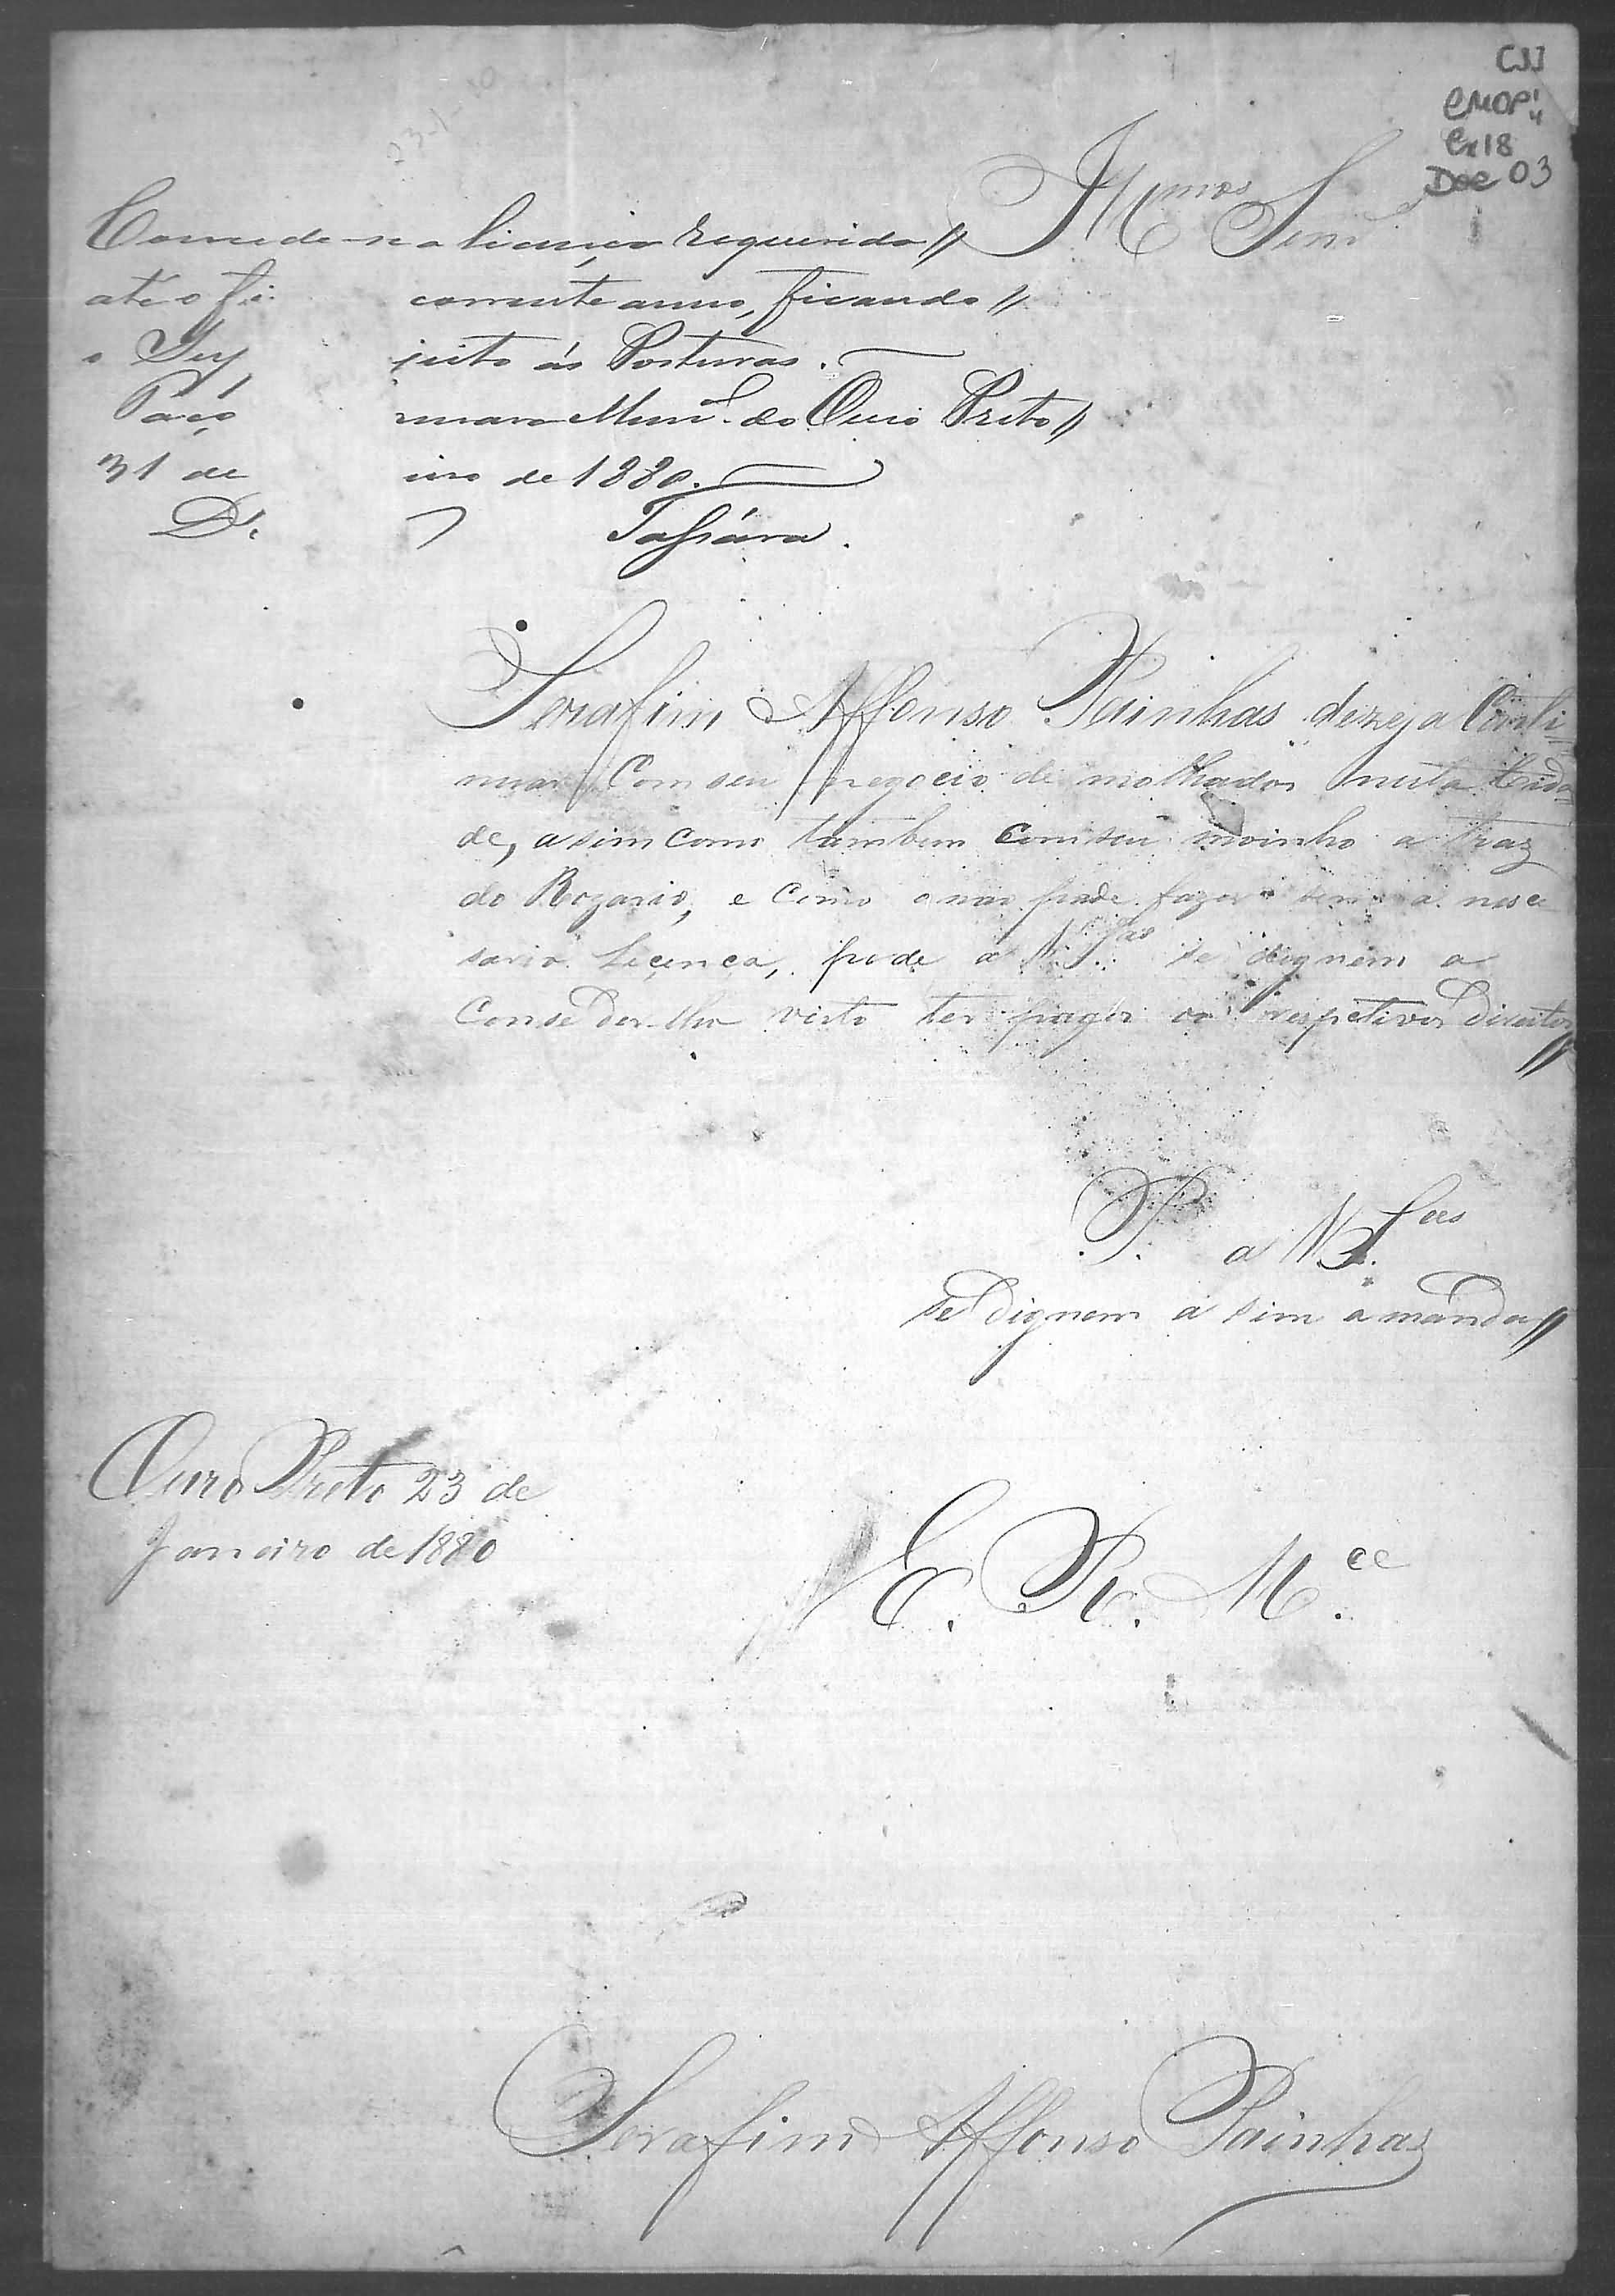 CJJ
CMOP
Cx18
Doc 03
Illmos Snrs
Concede-se a licença requerida //
até o fi corrente anno, ficando //
o Suj jeito ás Posturas.
Paço mara Munl. do Ouro Preto //
31 de iro de 1880.
Dr. Tassára.
Serafim Affonso Painhas dezeja Conti-
nuar Com seu negocio de molhados nesta Cida-
de, asim como tambem com seu moinho a traz
do Rozario, e Como o não pode fazer sem a nece
saria Leçença, pede a V. Sas se dignem a
Conseder-lha visto ter pago os respetivos Direitos //
P. a V. Sas
se Dignem a sim a mandar //
Ouro Preto 23 de
Janeiro de 1880
E. R. M.ce
Serafim Affonso Painhas